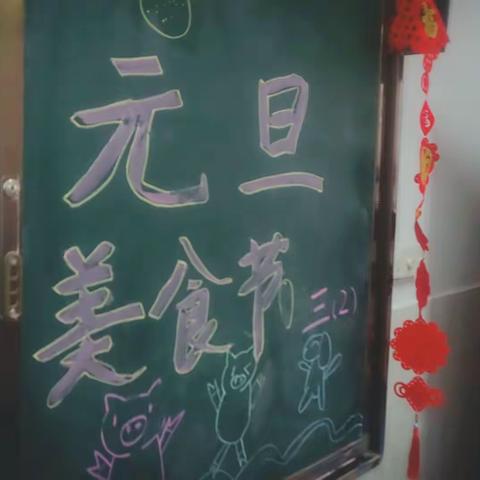 元旦
美食节
三(2)